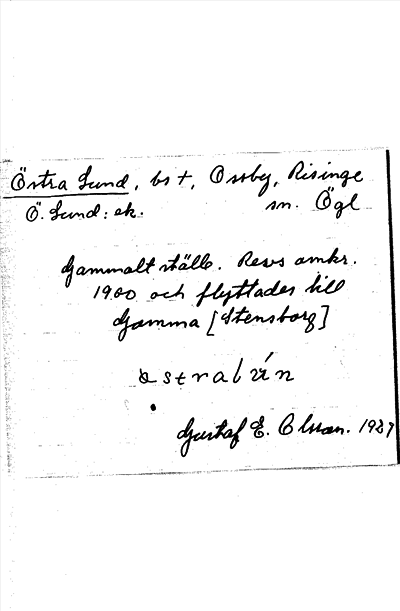 Östra Lund, bs †, Ossby, Risinge
Ö. Lund: ek. sn. Ögl
Gammalt ställe. Revs omkr.
1900 och flyttades till
Gamma [Stensborg]
Gustaf E. Olsson. 1937